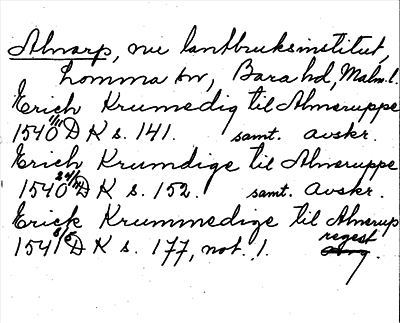 Alnarp, nu lantbruksinstitut,
Lomma sn, Bara hd, Malm. l.
Erich Krumedig til Almeruppe
1540 1/11 DK s. 141. samt. avskr.
Erich Krumdige til Almeruppe
1540 DK s. 152. samt. avskr.
Erick Krummedige til Almerup
1541 DK s. 177, not. 1. regest